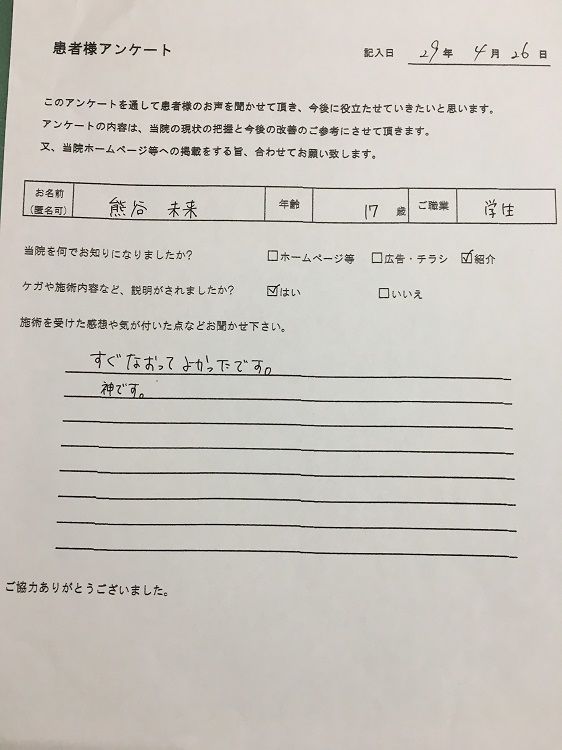 患者様アンケート 記入日 29年 4月 26日
このアンケートを通して患者様のお声を聞かせて頂き、今後に役立たせていきたいと思います。
アンケートの内容は、当院の現状の把握と今後の改善のご参考にさせて頂きます。
又、当院ホームページ等への掲載をする旨、合わせてお願い致します。
お名前 (匿名可) 熊谷 未来 年齢 17 歳 ご職業 学生
当院を何でお知りになりましたか? □ホームページ等 □広告・チラシ ☑紹介
ケガや施術内容など、説明がされましたか? ☑はい □いいえ
施術を受けた感想や気が付いた点などお聞かせ下さい。
すぐなおってよかったです。
神です。
ご協力ありがとうございました。